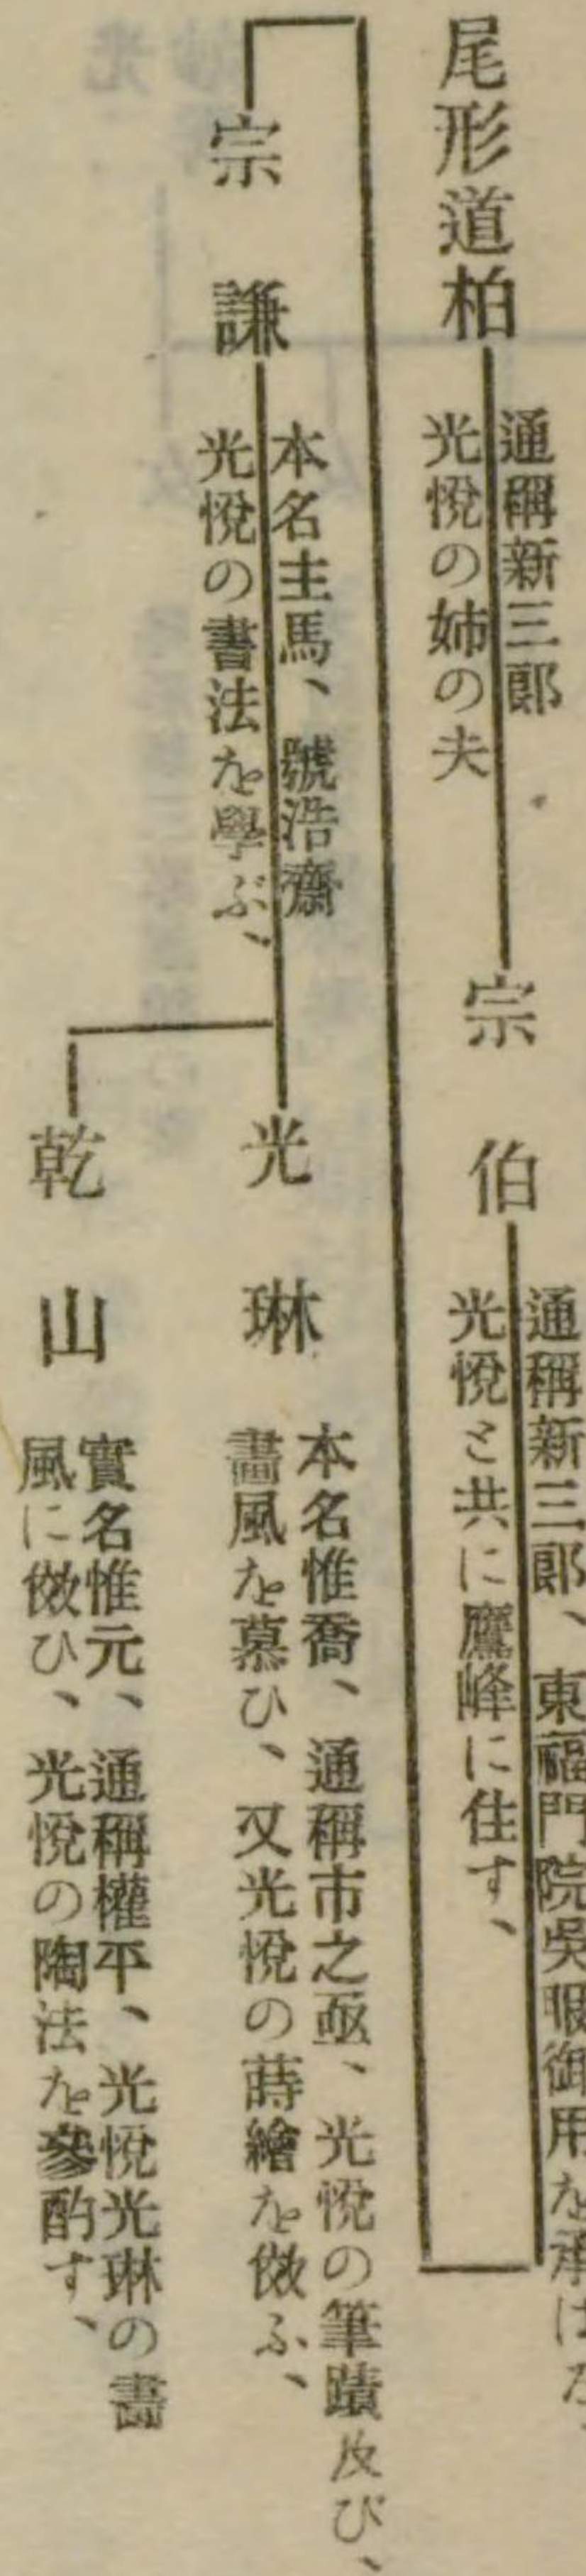 尾形道柏
通稱新三郎
光悅の姉の夫
宗伯
通稱新三郎、東福門院吳服御用を承はる、
光悅と共に鷹峰に住す、
宗謙
本名主馬、號浩齋
光悅の書法を學ぶ、
光琳
本名惟喬、通稱市之亟、光悅の筆蹟及び、
畫風を慕ひ、又光悅の蒔繪を倣ふ、
乾山
實名惟元、通稱權平、光悅光琳の畵
風に倣ひ、光悅の陶法を參酌す、